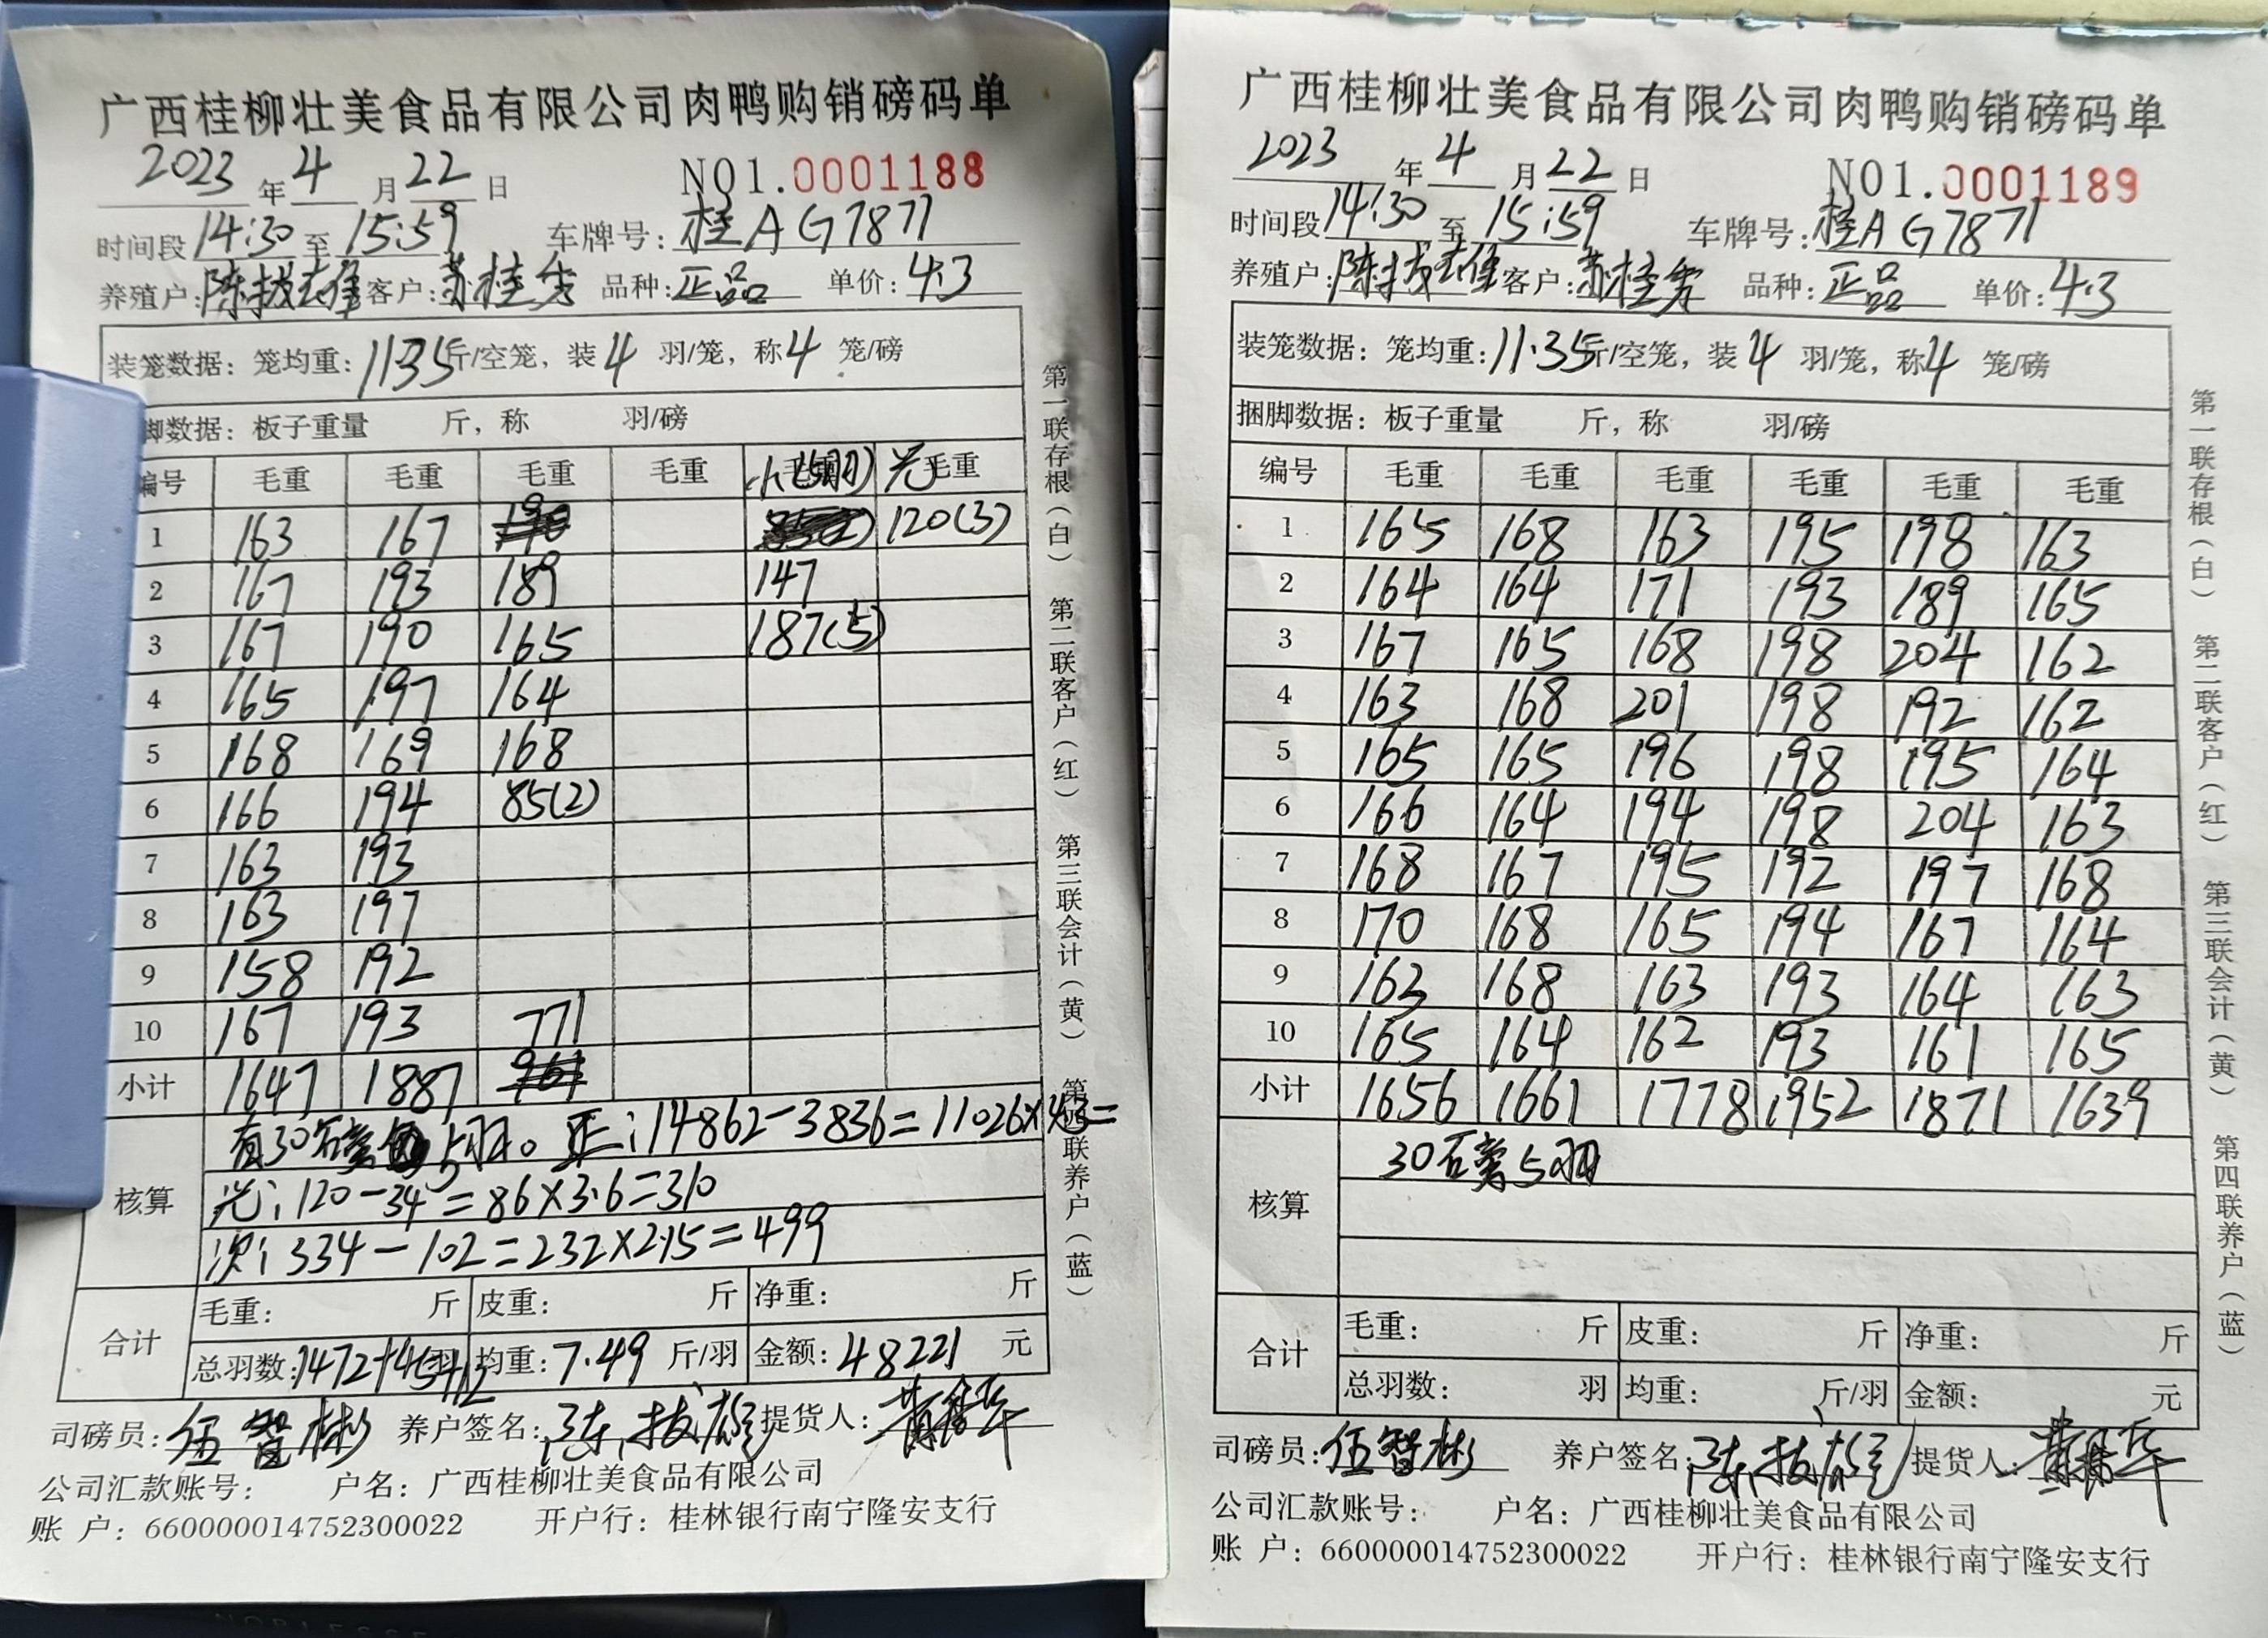 广西桂柳壮美食品有限公司肉鸭购销磅码单
2023年4月22日 NO1.0001188
时间段14:30至15:59 车牌号:桂AG7871
养殖户:陈拔雄 客户:苏桂 品种:正品 单价:4.3
装笼数据:笼均重:11.35斤/空笼,装4羽/笼,称4笼/磅
脚数据:板子重量 斤,称 羽/磅
编号 毛重 毛重 毛重 毛重 小(5羽) 光毛重
1 163 167 120(3)
2 167 193 189 147
3 167 190 165 187(5)
4 165 197 164
5 168 169 168
6 166 194 85(2)
7 163 193
8 163 197
9 158 192
10 167 193 771
小计 1647 1887
核算 有30磅 5羽。正:14862-3836=11026×4.3=
光:120-34=86×3.6=310
次:334-102=232×2.15=499
合计 毛重: 斤 皮重: 斤 净重: 斤
总羽数:1472+45+12羽 均重:7.49斤/羽 金额:48221元
司磅员:伍智彬 养户签名:陈拔雄 提货人:
公司汇款账号: 户名:广西桂柳壮美食品有限公司
账 户:660000014752300022 开户行:桂林银行南宁隆安支行
第一联存根(白) 第二联客户(红) 第三联会计(黄) 第四联养户(蓝)
广西桂柳壮美食品有限公司肉鸭购销磅码单
2023年4月22日 NO1.0001189
时间段14:30至15:59 车牌号:桂AG7871
养殖户:陈拔雄 客户:苏桂 品种:正品 单价:4.3
装笼数据:笼均重:11.35斤/空笼,装4羽/笼,称4笼/磅
捆脚数据:板子重量 斤,称 羽/磅
编号 毛重 毛重 毛重 毛重 毛重 毛重
1 165 168 163 195 198 163
2 164 164 171 193 189 165
3 167 165 168 198 204 162
4 163 168 201 198 192 162
5 165 165 196 198 195 164
6 166 164 194 198 204 163
7 168 167 195 192 197 168
8 170 168 165 194 167 164
9 163 168 163 193 164 163
10 165 164 162 193 161 165
小计 1656 1661 1778 1952 1871 1639
核算 30磅5羽
合计 毛重: 斤 皮重: 斤 净重: 斤
总羽数: 羽 均重: 斤/羽 金额: 元
司磅员:伍智彬 养户签名:陈拔雄 提货人:
公司汇款账号: 户名:广西桂柳壮美食品有限公司
账 户:660000014752300022 开户行:桂林银行南宁隆安支行
第一联存根(白) 第二联客户(红) 第三联会计(黄) 第四联养户(蓝)